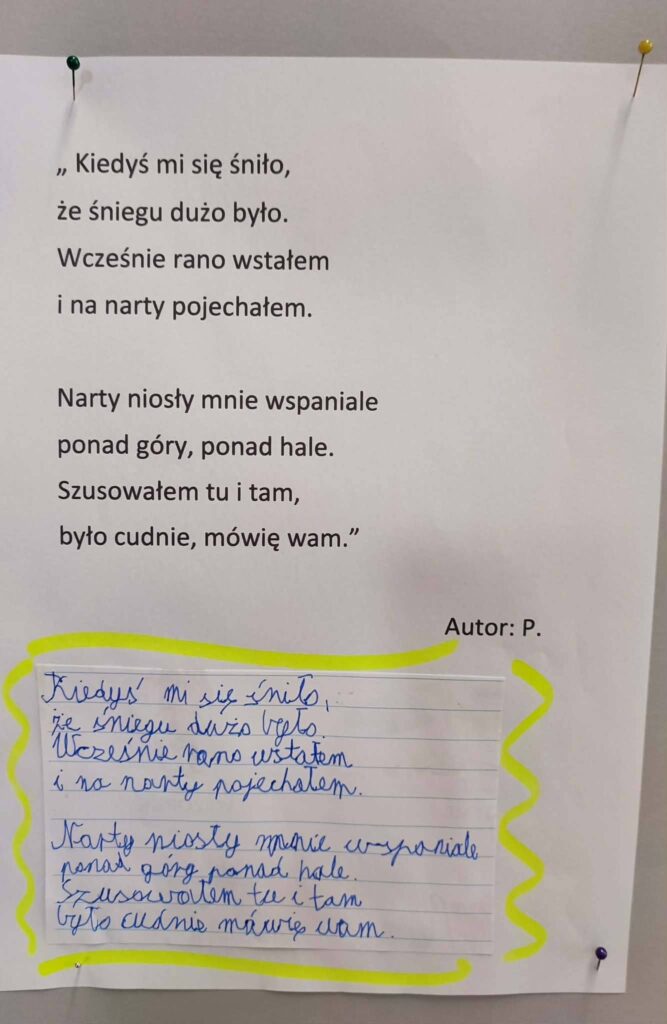 „ Kiedyś mi się śniło,
że śniegu dużo było.
Wcześnie rano wstałem
i na narty pojechałem.
Narty niosły mnie wspaniale
ponad góry, ponad hale.
Szusowałem tu i tam,
było cudnie, mówię wam.”
Autor: P.
Kiedyś mi się śniło,
że śniegu dużo było.
Wcześnie rano wstałem
i na narty pojechałem.
Narty niosły mnie wspaniale
ponad góry ponad hale.
Szusowałem tu i tam
było cudnie mówię wam.